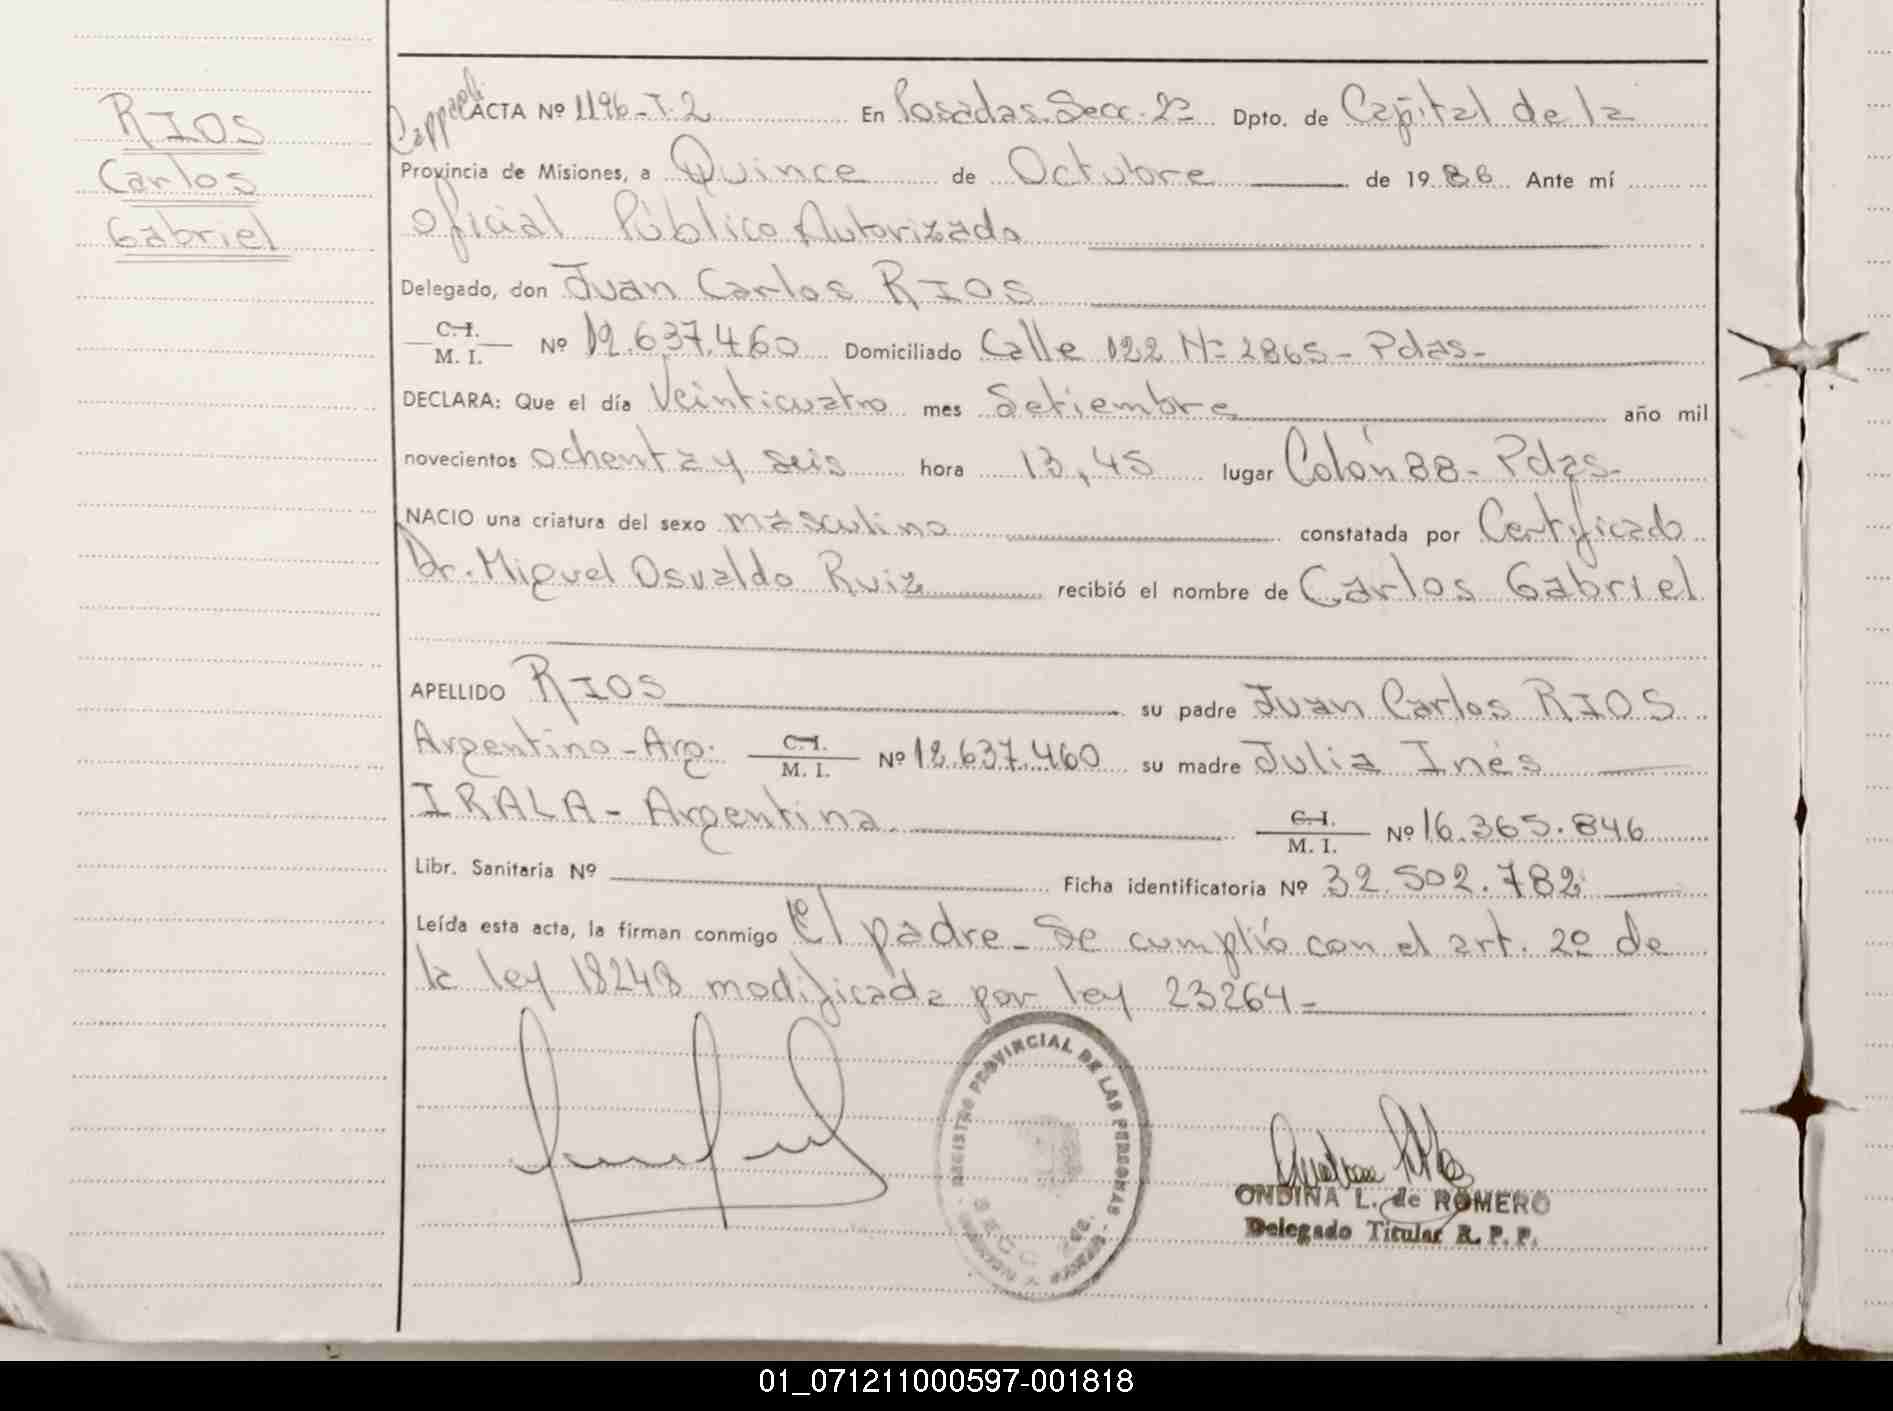 RIOS
Carlos
Gabriel
ACTA Nº 1196-T.2 En Posadas.Secc.2ª Dpto. de Capital de la
Provincia de Misiones, a Quince de Octubre de 1986 Ante mí
Oficial Público Autorizado
Delegado, don Juan Carlos RIOS
C.I.
M. I. Nº 12.637.460 Domiciliado Calle 122 Nº 2865- Pdas-
DECLARA: Que el día Veinticuatro mes Setiembre año mil
novecientos ochenta y seis hora 13,45 lugar Colón 88- Pdas-
NACIO una criatura del sexo masculino constatada por Certificado
Dr. Miguel Osvaldo Ruiz recibió el nombre de Carlos Gabriel
APELLIDO RIOS su padre Juan Carlos RIOS
Argentino-Arg. C.I. M. I. Nº 12.637.460 su madre Julia Inés
IRALA- Argentina C.I. M. I. Nº 16.365.846
Libr. Sanitaria Nº Ficha identificatoria Nº 32.502.782
Leída esta acta, la firman conmigo El padre- Se cumplió con el art. 2º de
la ley 18248 modificada por ley 23264-
REGISTRO PROVINCIAL DE LAS PERSONAS
SECC. 2da.
POSADAS MISIONES
ONDINA L. de ROMERO
Delegado Titular R. P. P.
01_071211000597-001818